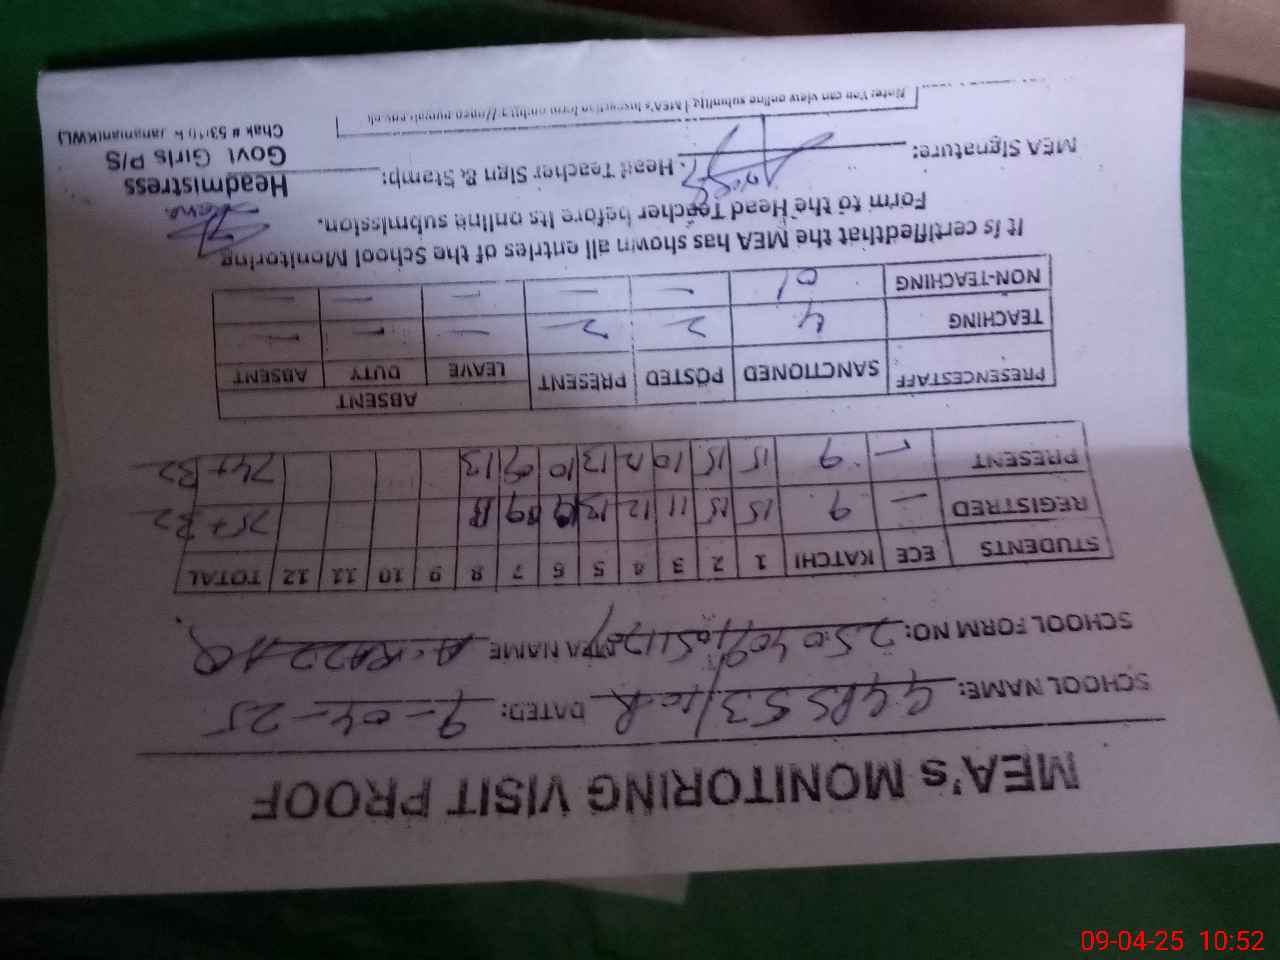 MEA's MONITORING VISIT PROOF
SCHOOL NAME: GGPS 53/10-R DATED: 9-04-25
SCHOOL FORM NO: MEA NAME A. RAZZAQ
STUDENTS ECE KATCHI 1 2 3 4 5 6 7 8 9 10 11 12 TOTAL
REGISTRED — 9 15 15 11 12 13 09 75+32
PRESENT — 9 15 15 10 12 13 10 09 13 74+32
PRESENCESTAFF SANCTIONED POSTED PRESENT ABSENT
LEAVE DUTY ABSENT
TEACHING 4 2 2 — — —
NON-TEACHING 01 — — — — —
It is certifiedthat the MEA has shown all entries of the School Monitoring
Form to the Head Teacher before its online submission.
MEA Signature: Head Teacher Sign & Stamp:
Headmistress
Govt Girls P/S
Chak # 53/10 R
Note: You can view online
09-04-25 10:52